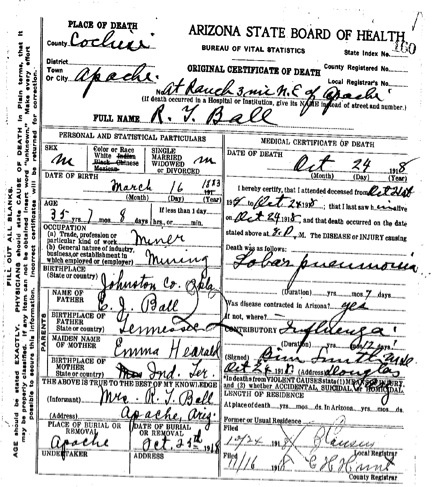 PLACE OF DEATH
ARIZONA STATE BOARD OF HEALTH
County Cochise
BUREAU OF VITAL STATISTICS
State Index No. 160
District
ORIGINAL CERTIFICATE OF DEATH
County Registered No.
Town Or City Apache
Local Registrar's No.
No. at Ranch 3 mi N.E of Apache
(If death occurred in a Hospital or Institution, give its NAME instead of street and number.)
FULL NAME R. T. Ball
PERSONAL AND STATISTICAL PARTICULARS
SEX M
Color or Race White Indian Black Chinese Mexican
SINGLE MARRIED WIDOWED or DIVORCED M
DATE OF BIRTH
March 16 1883
(Month) (Day) (Year)
AGE
If less than 1 day
35 yrs. 7 mos. 8 days hrs., or min.
OCCUPATION
(a) Trade, profession or particular kind of work Miner
(b) General nature of industry, business, or establishment in which employed or (employer) Mining
BIRTHPLACE (State or country)
Johnston Co.
NAME OF FATHER Ball
BIRTHPLACE OF FATHER State or country Tennessee
PARENTS
MAIDEN NAME OF MOTHER Emma
BIRTHPLACE OF MOTHER State or country Ind. Ter.
THE ABOVE IS TRUE TO THE BEST OF MY KNOWLEDGE
(Informant) Mrs. R. T. Ball
(Address) Apache, Ariz.
PLACE OF BURIAL OR REMOVAL
Apache
DATE OF BURIAL OR REMOVAL
Oct. 25th 1918
UNDERTAKER
ADDRESS
MEDICAL CERTIFICATE OF DEATH
DATE OF DEATH
Oct 24 1918
(Month) (Day) (Year)
I hereby certify, that I attended deceased from Oct 21st
191 to Oct 24 1918; that I last saw h im alive
on Oct 24 1918, and that death occurred on the date
stated above at P.M. The DISEASE or INJURY causing
Death was as follows:
Lobar pneumonia
(Duration) yrs. mos 7 days
Was disease contracted in Arizona? yes
If not, where?
CONTRIBUTORY Influenza
(Duration) days
(Signed) Smith M.D.
Oct 24 1918 (Address) Douglas
*In deaths from VIOLENT CAUSES state (1) MEANS OF INJURY, and (2) whether ACCIDENTAL, SUICIDAL or HOMICIDAL
LENGTH OF RESIDENCE
At place of death yrs. mos. ds. In Arizona yrs. mos ds.
Former or Usual Residence
Filed 10/24 1918
Local Registrar
Filed 11/16 1918 C H Hunt
County Registrar
FILL OUT ALL BLANKS.
AGE should be stated EXACTLY. PHYSICIANS should state CAUSE OF DEATH in Plain terms, that it
may be properly classified. If any item can not be obtained insert word "unknown." Make every effort
possible to secure this information. Incorrect certificates will be returned for correction.